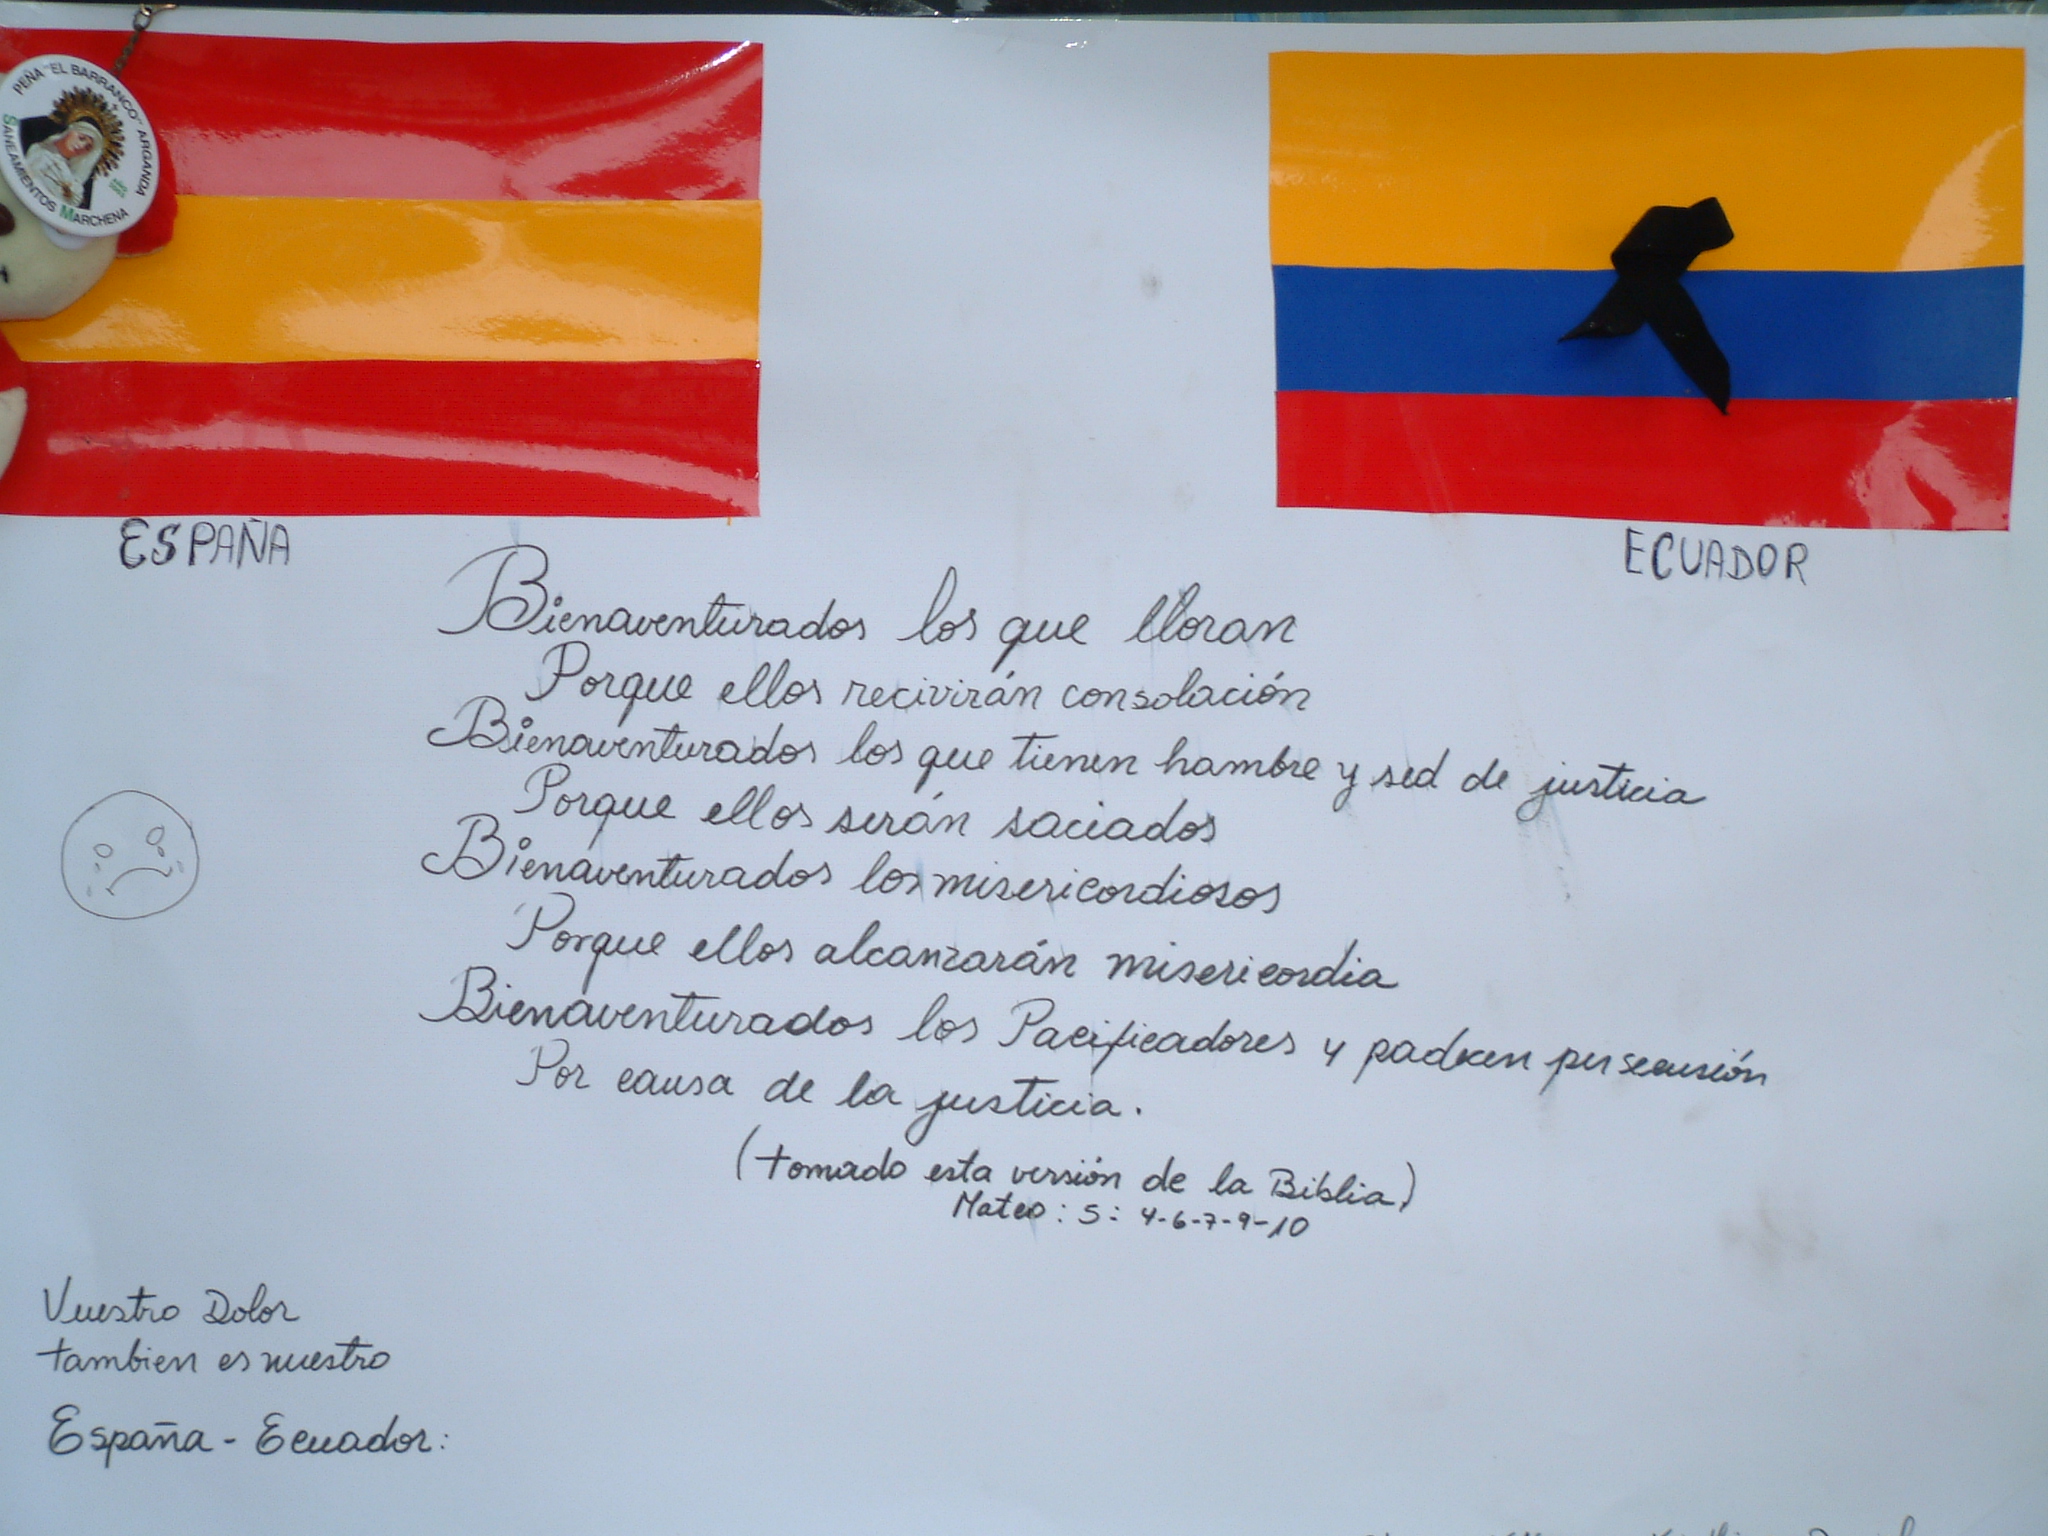 PEÑA "EL BARRANCO" ARGANDA
SANEAMIENTOS MARCHENA
ESPAÑA
ECUADOR
Bienaventurados los que lloran
Porque ellos recivirán consolación
Bienaventurados los que tienen hambre y sed de justicia
Porque ellos serán saciados
Bienaventurados los misericordiosos
Porque ellos alcanzarán misericordia
Bienaventurados los Pacificadores y padecen persecusión
Por causa de la justicia.
(tomado esta versión de la Biblia)
Mateo: 5: 4-6-7-9-10
Vuestro Dolor
tambien es nuestro
España - Ecuador: